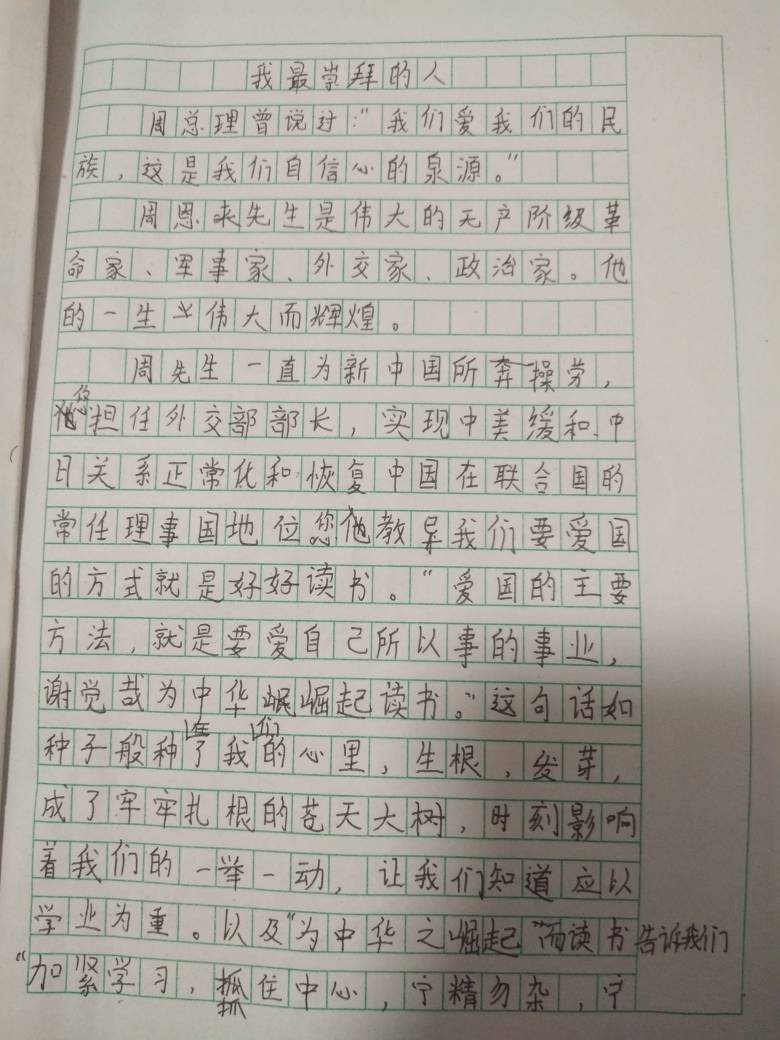 我最崇拜的人
周总理曾说过:"我们爱我们的民
族，这是我们自信心的泉源。"
周恩来先生是伟大的无产阶级革
命家、军事家、外交家、政治家。他
的一生伟大而辉煌。
周先生一直为新中国所奔操劳，
您担任外交部部长，实现中美缓和、中
日关系正常化和恢复中国在联合国的
常任理事国地位您他教导我们要爱国
的方式就是好好读书。"爱国的主要
方法，就是要爱自己所以事的事业，
谢觉哉为中华岷崛起读书。"这句话如
种子般种进了我们的心里，生根，发芽，
成了牢牢扎根的苍天大树，时刻影响
着我们的一举一动，让我们知道应以
学业为重。以及"为中华之崛起"而读书告诉我们
"加紧学习，抓住中心，宁精勿杂，宁